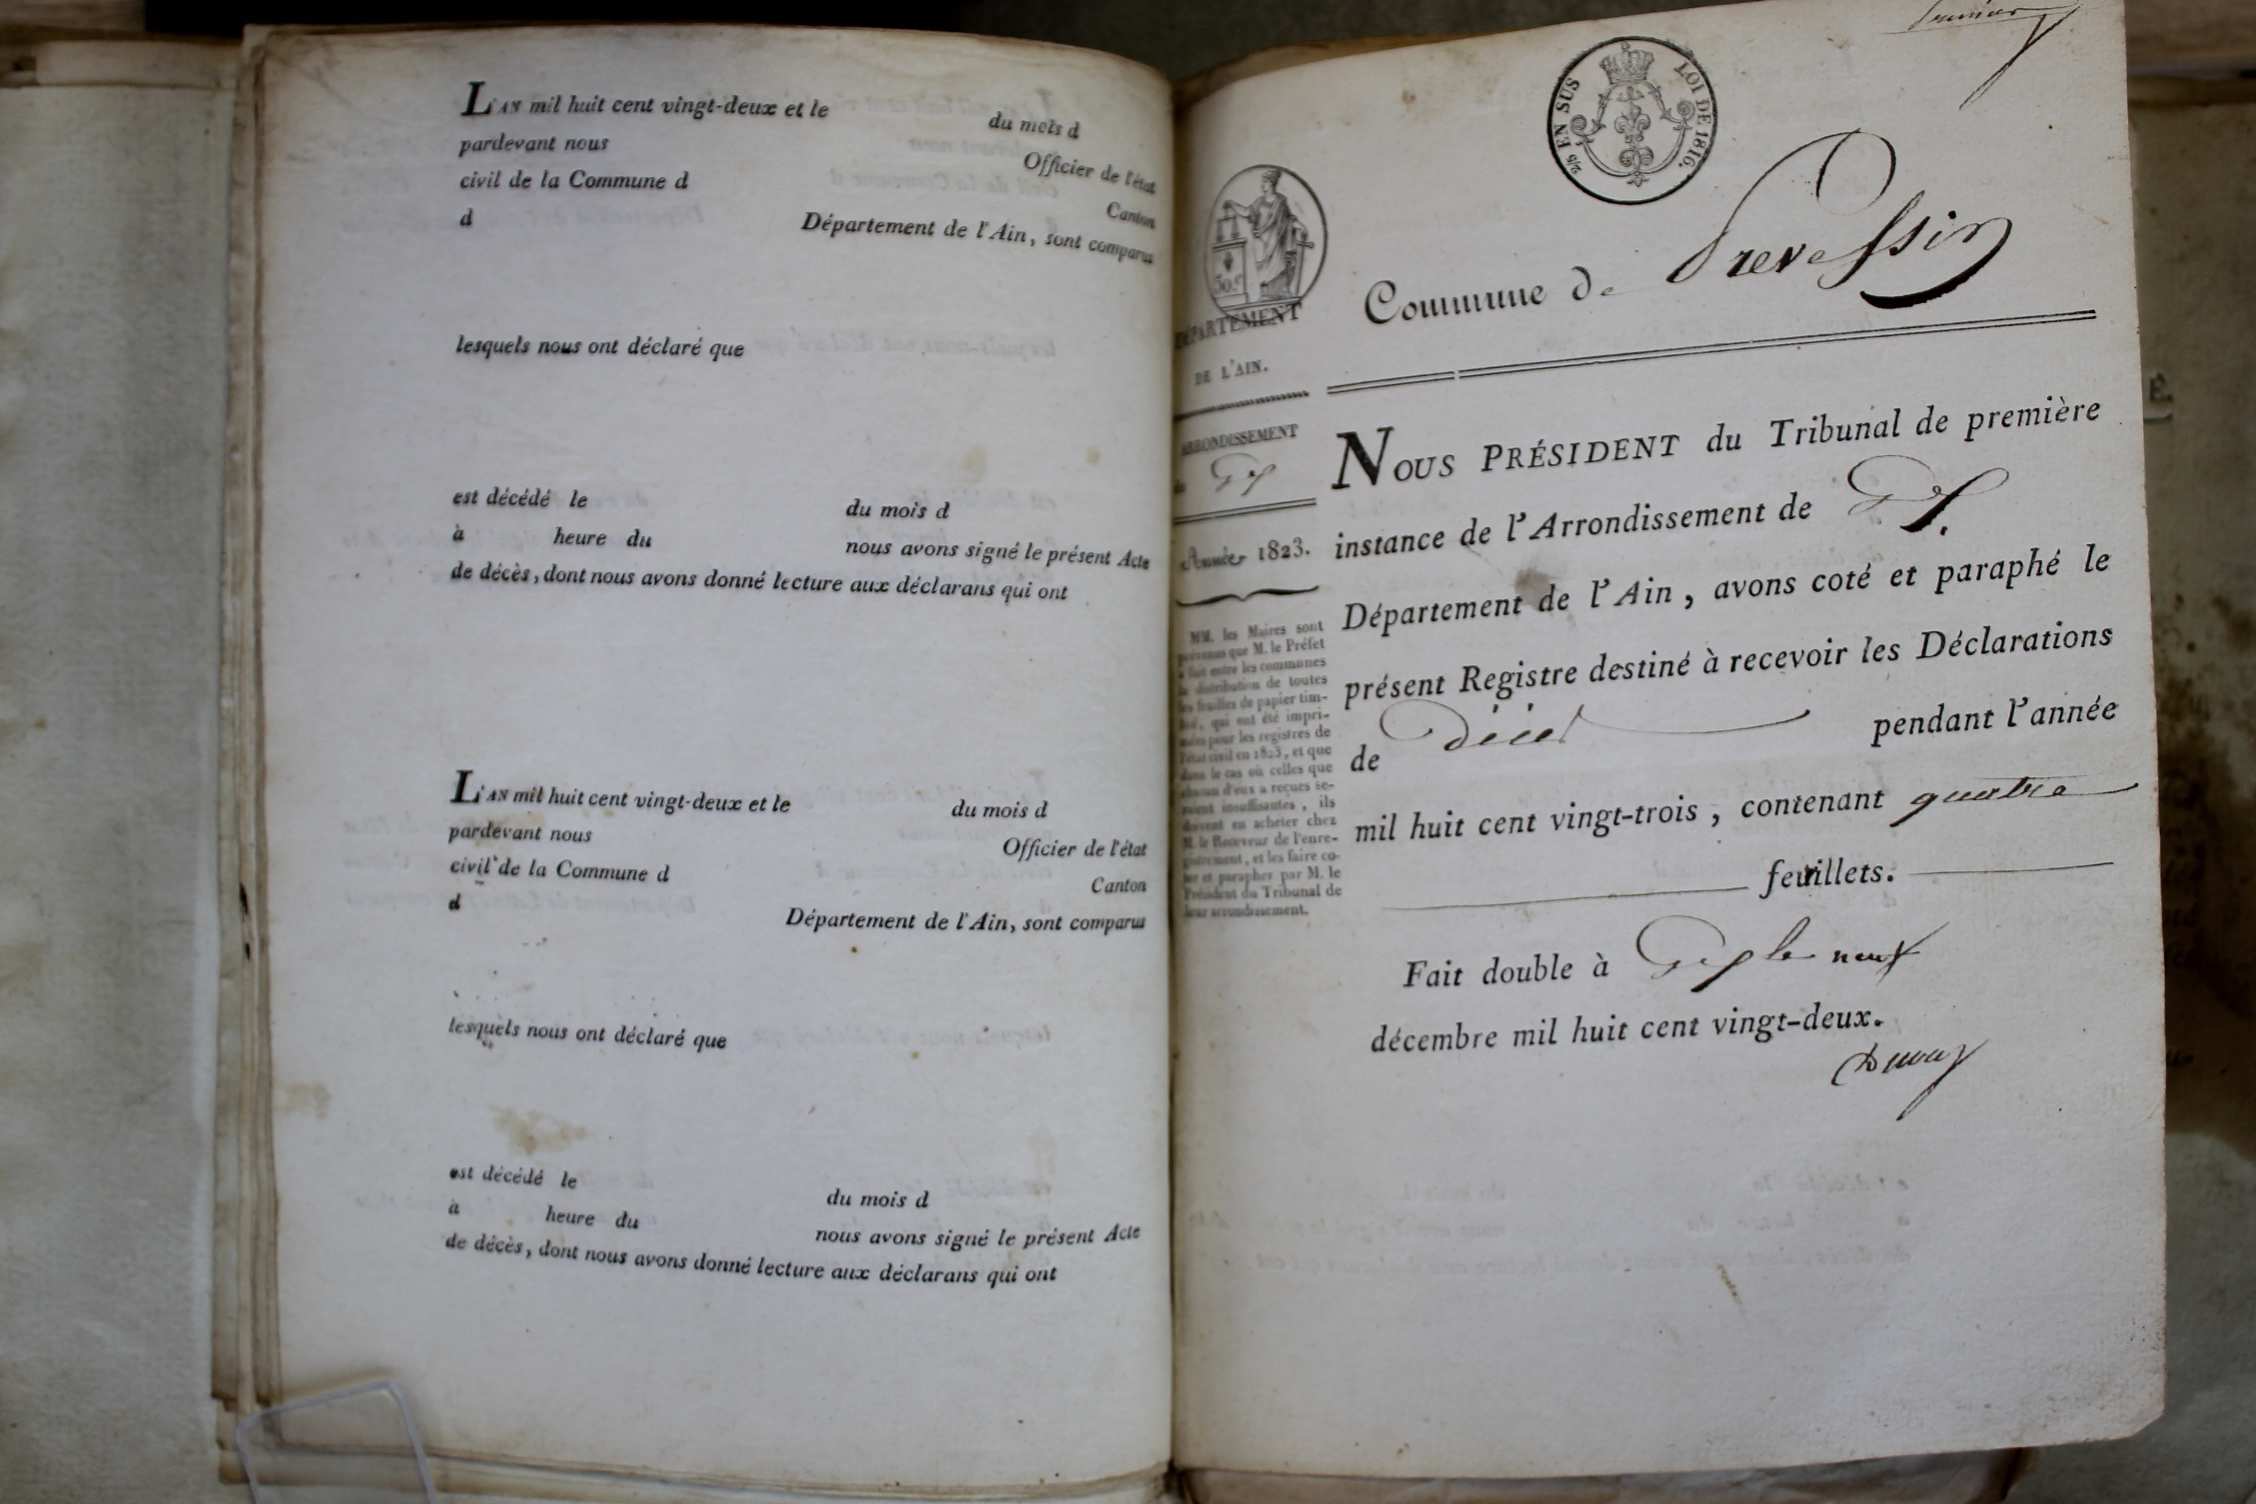 L'AN mil huit cent vingt-deux et le du mois d
pardevant nous Officier de l'état
civil de la Commune d Canton
d Département de l'Ain, sont comparus
lesquels nous ont déclaré que
est décédé le du mois d
à heure du nous avons signé le présent Acte
de décès, dont nous avons donné lecture aux déclarans qui ont
L'AN mil huit cent vingt-deux et le du mois d
pardevant nous Officier de l'état
civil de la Commune d Canton
d Département de l'Ain, sont comparus
lesquels nous ont déclaré que
est décédé le du mois d
à heure du nous avons signé le présent Acte
de décès, dont nous avons donné lecture aux déclarans qui ont
premier
2/5 EN SUS LOI DE 1816.
50.c
DÉPARTEMENT
DE L'AIN.
ARRONDISSEMENT
de Gex
Année 1823.
MM. les Maires sont
prévenus que M. le Préfet
a fait entre les communes
la distribution de toutes
les feuilles de papier tim-
bré, qui ont été impri-
mées pour les registres de
l'état civil en 1823, et que
dans le cas où celles que
chacun d'eux a reçues se-
roient insuffisantes, ils
doivent en acheter chez
M. le Receveur de l'enre-
gistrement, et les faire co-
ter et parapher par M. le
Président du Tribunal de
leur arrondissement.
Commune de Prevessin
NOUS PRÉSIDENT du Tribunal de première
instance de l'Arrondissement de Gex.
Département de l'Ain, avons coté et paraphé le
présent Registre destiné à recevoir les Déclarations
de décès pendant l'année
mil huit cent vingt-trois, contenant quatre
feuillets.
Fait double à Gex le neuf
décembre mil huit cent vingt-deux.